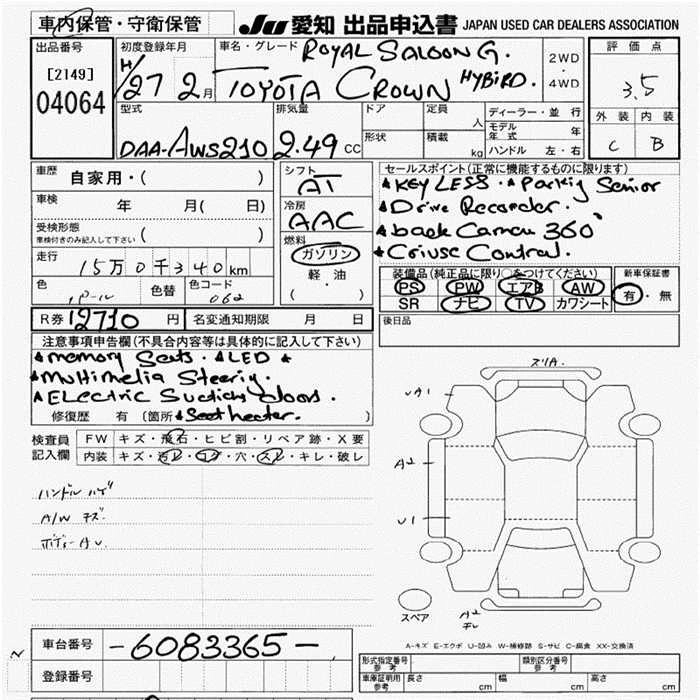 車内保管・守衛保管
JU 愛知 出品申込書 JAPAN USED CAR DEALERS ASSOCIATION
出品番号
[2149]
04064
初度登録年月
H/27 2月
車名・グレード ROYAL SALOON G.
TOYOTA CROWN HYBIRD.
2WD
・
4WD
評価点
3.5
外装 内装
C B
型式
DAA-AWS210
排気量
2.49 CC
ドア
形状
定員 人
積載 kg
ディーラー・並行
モデル年式 年
ハンドル 左・右
車歴
自家用・( )
車検 年 月( 日)
受検形態
車検付きのみ記入して下さい ( )
走行
15万0千340km
色 パール
色替
色コード
062
シフト
AT
冷房
AAC
燃料
ガソリン
軽・油
( )
セールスポイント(正常に機能するものに限ります)
KEYLESS. Parkig Senior
Drive Recorder.
back Camera 360°
Criuse Control.
装備品(純正品に限り○をつけてください)
PS PW エアB AW
SR ナビ TV カワシート
新車保証書
有・無
R券 12710 円
名変通知期限 月 日
後日品
注意事項申告欄(不具合内容等は具体的に記入して下さい)
memory Seats. LED
Multimelia Steerig.
ELEctric Suctioy doors.
修復歴 有 〔箇所 Seat heater.
検査員
記入欄
FW キズ・飛石・ヒビ割・リペア跡・X要
内装 キズ・汚レ・コゲ・穴・スレ・キレ・破レ
ハンドル ハゲ
A/W キズ.
ボディー AU.
ズリA.
UA1
A2
U1
スペア
A2
A-キズ E-エクボ U-凹み W-補修跡 S-サビ C-腐食 XX-交換済
車台番号 -6083365-
登録番号
形式指定番号 参考
類別区分番号 参考
車庫証明用 参考 長さ cm 幅 cm 高さ cm